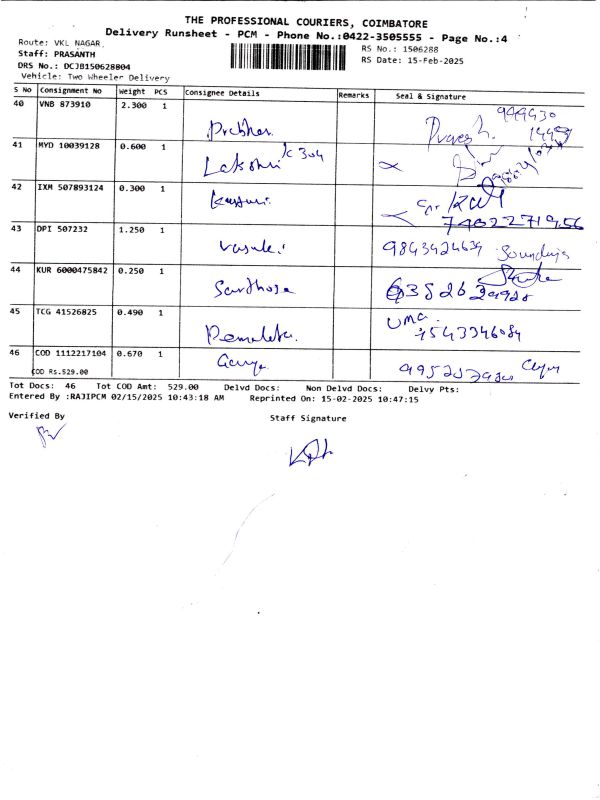 THE PROFESSIONAL COURIERS, COIMBATORE
Delivery Runsheet - PCM - Phone No.:0422-3505555 - Page No.:4
Route: VKL NAGAR
RS No.: 1506288
Staff: PRASANTH
RS Date: 15-Feb-2025
DRS No.: DCJB150628B04
Vehicle: Two Wheeler Delivery
S No Consignment No Weight PCS Consignee Details Remarks Seal & Signature
40 VNB 873910 2.300 1
Prabhu
41 MYD 10039128 0.600 1
Lakshmi K 304
42 IXM 507893124 0.300 1
Kasturi
43 DPI 507232 1.250 1
Vasuki
44 KUR 6000475842 0.250 1
Santhosh
45 TCG 41526825 0.490 1
UMA
46 COD 1112217104 0.670 1
COD RS.529.00
Tot Docs: 46 Tot COD Amt: 529.00 Delvd Docs: Non Delvd Docs: Delvy Pts:
Entered By :RAJIPCM 02/15/2025 10:43:18 AM Reprinted On: 15-02-2025 10:47:15
Verified By
Staff Signature